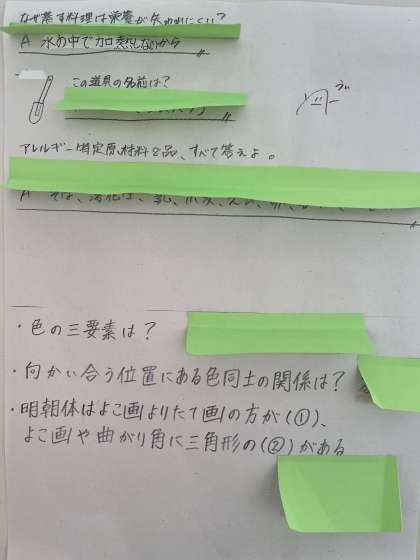 なぜ蒸す料理は栄養が失われにくい?
A 水の中で加熱しないから
この道具の名前は?
アレルギー特定原材料8品、すべて答えよ。
A そば、落花生、乳、小麦、えび、卵、
・色の三要素は?
・向かい合う位置にある色同士の関係は?
・明朝体はよこ画よりたて画の方が(①)、
よこ画や曲がり角に三角形の(②)がある